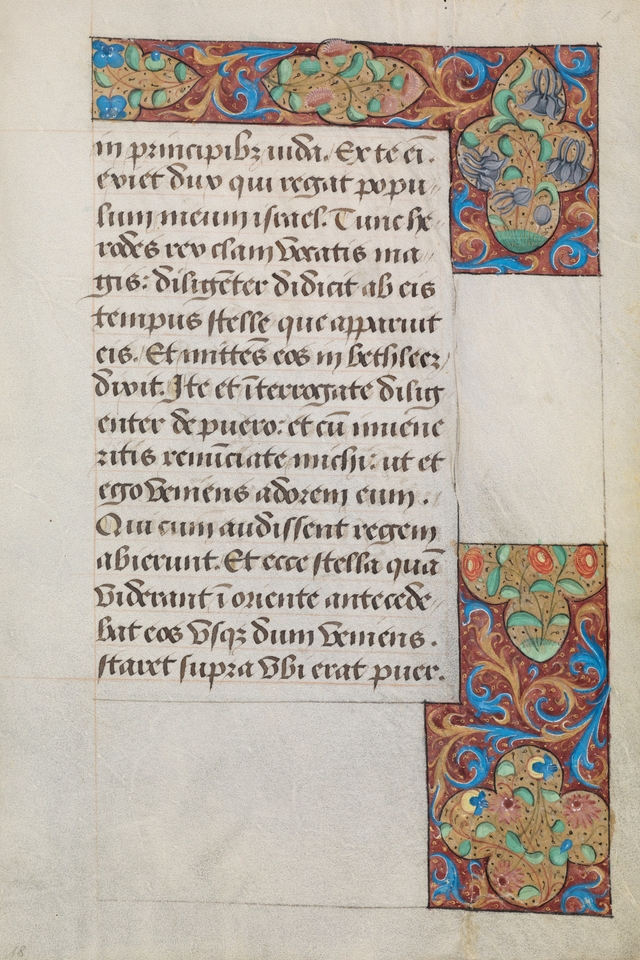 in principibꝫ iuda. Ex te eī.
exiet dux qui regat popu
lum meum israel. Tunc he
rodes rex clam vocatis ma
gis: diligēter didicit ab eis
tempus stelle que apparuit
eis. Et mittēs eos in bethleeꝫ
dixit. Ite et īterrogate dilig
enter de puero: et cū inuene
ritis renūciate michi: ut et
ego veniens adorem eum.
Qui cum audissent regem
abierunt. Et ecce stella quā
viderant ī oriente antecede
bat eos vsqꝫ dum veniens.
staret supra vbi erat puer.
18